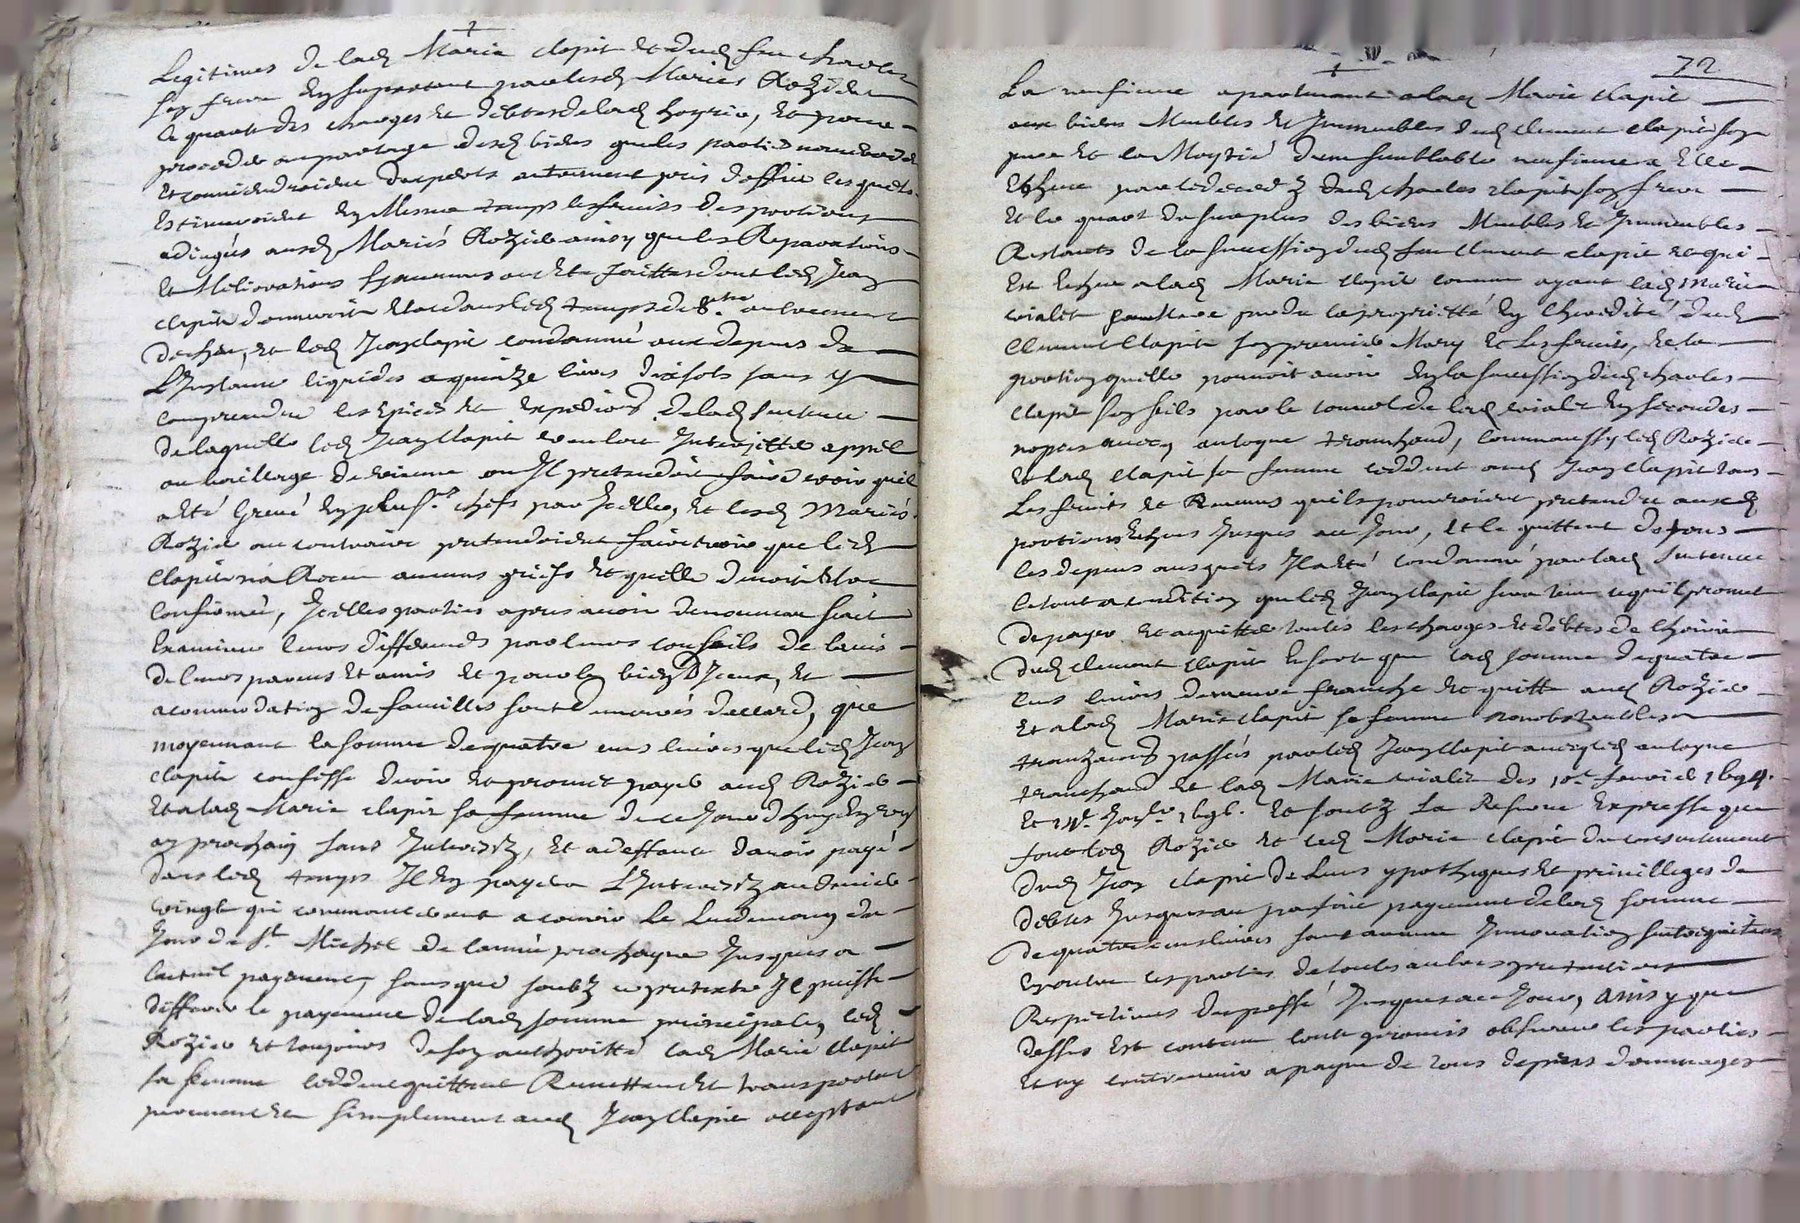 Legitimes de lad Marie clapit et dud feu charles
son frere en suportant par lesd Maries Rozier
le quart des charges et debtes de lad hoyrie, et pour
proceder au partage desd biens que les parties nommeroient
et conviendroient d'expertz autrement pris d'office lesquels
estimeroient en Mesme temps les fruits des portions
adiugés ausd Mariés Rozier ainsy que les Reparations
et Meliorations sy aucunes ont été faittes dont led Jean
clapit donneroit etat dans led temps
decheu, et led Jean clapit condamné aux depens de
L'Instance liquides a quinze livres dix sols sans y
comprendre les epices et expedions de lad sentence
de laquelle led Jean Clapit vouloit Interjetter appel
au bailliage de vienne ou Il pretendoit faire voir quil
a été Grevé en plus.rs chefs par Icelle, et lesd Mariés
Rozier au contraire pretendoient faire voir que led
Clapit n'a Receu aucuns griefs et quelle devoit être
Confirmée, Icelles parties apres avoir de nouveau fait
Examiner leurs differends par leurs conseils de l'avis
de leurs parens et amis et pour le bien D'Iceux, et
acommodation de familles sont demeurés d'accord, que
moyennant la somme de quatre cens livres que led Jean
clapit confesse devoir et promet payer aud Rozier
et a lad Marie clapit sa femme de ce jourd'huy en trois
an prochain sans Interestz, et a deffaut d'avoir payé
dans led temps Il en payera L'Interestz au denier
vingt qui commanceront a courir Le Lendemain du
Jour de S.t Michel de l'année prochayne Jusques a
lactuel payement, sans que soubz ce pretexte Il puisse
differer le payement de lad somme principale, led
Rozier et toujours de son authoritté lad Marie Clapit
sa femme ceddent quittent Remettent et transportent
purement et simplement aud Jean Clapit acceptant
72
La apartenant a lad Marie Clapit
aux biens Meubles et Immeubles dud Clement clapit son
pere et la Moytié d'une semblable a Elle
Echeue par le deced z dud Charles clapit son frere
et le quart du surplus des biens Meubles et Immeubles
Restants de la succession dud feu Clement clapit et qui
est Echeu a lad Marie clapit comme ayant lad Marie
vialet sa Mere perdu la proprietté en l'heredité dud
Clement Clapit son premier Mary et les fruits, et la
portion quelle pouvoit avoir en la succession dud charles
clapit son fils par le convol de lad vialet en secondes
nopces avecq antoyne tranchand, comme aussy led Rozier
et lad Clapit sa femme ceddent aud Jean Clapit tous
Les fruits et Revenus quils pourroient pretendre ausd
portions Echeues Jusques a ce Jour, et le quittent de tous
les depens ausquels Il a été condamné par lad sentence
le tout a condition que led Jean clapit sera tenu ce quil promet
de payer et acquitter toutes les charges et debtes de l'hoirie
dud clement clapit Ensorte que lad somme de quatre
cens livres demeure franche et quitte aud Rozier
et a lad Marie clapit sa femme nonobstant les
tranzactions passées par led Jean Clapit avecq led antoyne
tranchand et lad Marie vialet des 10.e fevrier 1694.
et 1696. et soubz La Reserve Expresse que
font led Rozier et lad Marie clapit du consentement
dud Jean clapit de Leurs ypotheques et privilleges de
debtes Jusques au parfait payement de lad somme
de quatre cens livres sans aucune Innovation
les parties de toutes autres pretentions
Respectives du passé Jusques a ce Jour, Ainsy que
dessus est contenu l'ont promis observer les parties
et ny contrevenir a payne de tous depens dommages